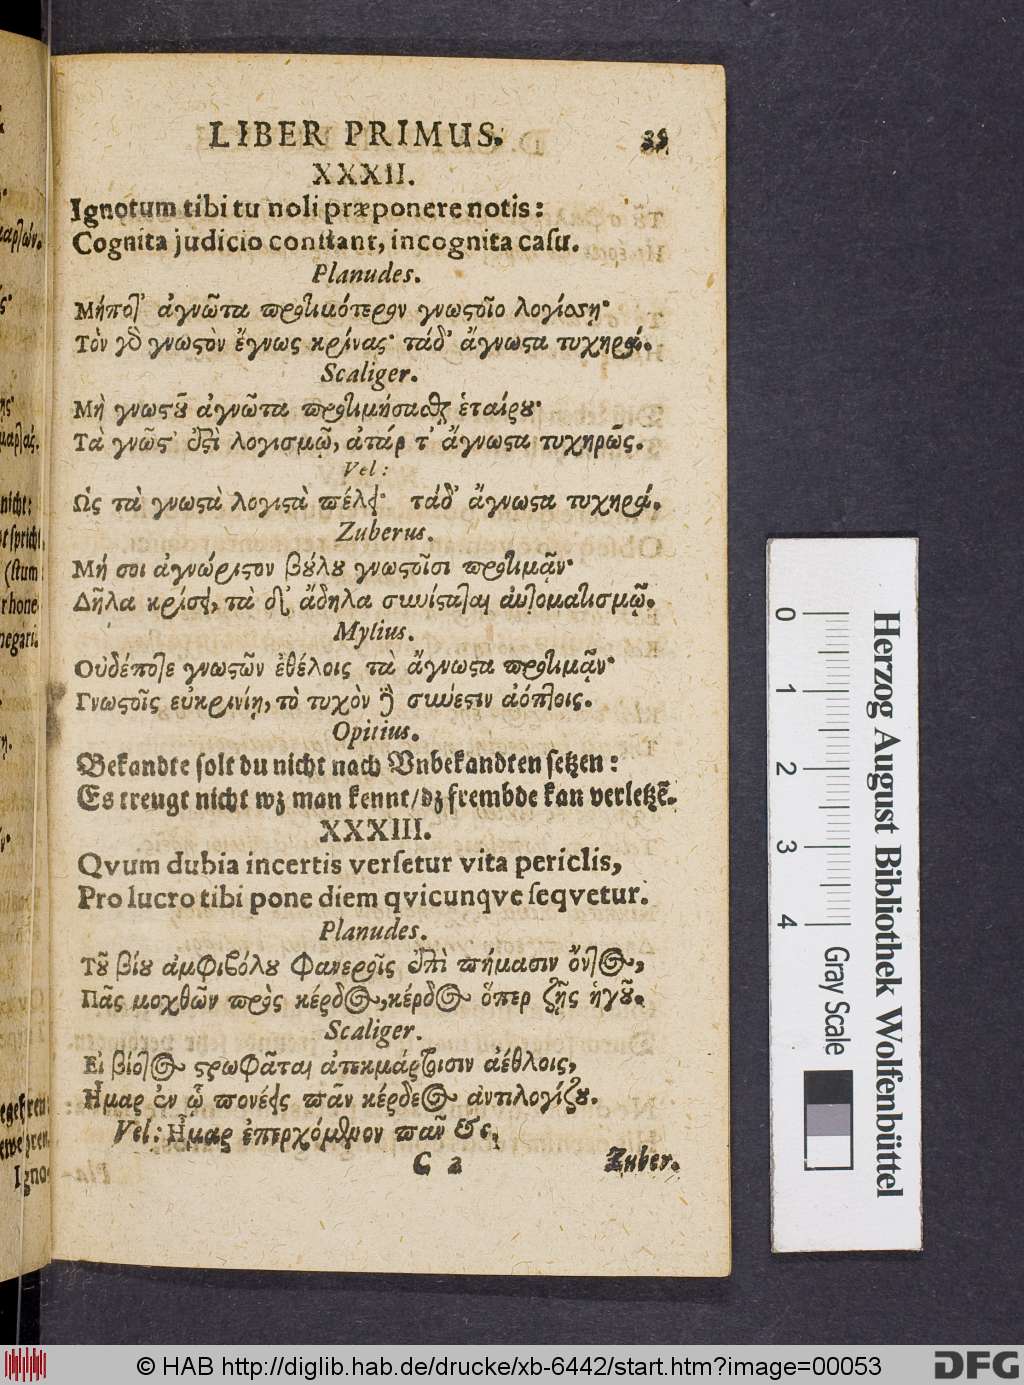 LIBER PRIMUS. 35
XXXII.
Ignotum tibi tu noli præponere notis:
Cognita judicio conſtant, incognita caſu.
Planudes.
Μήποτ' ἀγνῶτα προτιμότερον γνωστοῖο λογίσῃ·
Τὸν γὸ γνωστὸν ἔγνως κρίνας· τάδ' ἄγνωστα τυχηρά.
Scaliger.
Μὴ γνωστοῦ ἀγνῶτα προτιμήσασθαι ἑταίρου·
Τὰ γνῶστ' ἐπὶ λογισμῷ, ἀτάρ τ' ἄγνωστα τυχηρῶς.
Vel:
Ὡς τὰ γνωστὰ λογιστὰ πέλει· τάδ' ἄγνωστα τυχηρά.
Zuberus.
Μή σοι ἀγνώριστον βούλου γνωστοῖσι προτιμᾷν·
Δῆλα κρίσει, τὰ δ' ἄδηλα συνίσταται αὐτοματισμῷ.
Mylius.
Οὐδέποτε γνωστῶν ἐθέλοις τὰ ἄγνωστα προτιμᾷν·
Γνωστοῖς εὐκρινίη, τὸ τυχὸν δὲ συνέστιν ἀόπτοις.
Opitius.
Bekandte ſolt du nicht nach Vnbekandten ſetzen:
Es treugt nicht wz man kennt/dz frembde kan verletzẽ.
XXXIII.
Qvum dubia incertis verſetur vita periclis,
Pro lucro tibi pone diem qvicunqve ſeqvetur.
Planudes.
Τοῦ βίου ἀμφιβόλου φανεροῖς ἐπὶ πήμασιν ὄντος,
Πᾶς μοχθῶν πρὸς κέρδος, κέρδος ὅπερ ζῇς ἡγοῦ.
Scaliger.
Εἰ βίοτος στρωφᾶται ἀτεκμάρτοισιν ἀέθλοις,
Ἦμαρ ἐν ᾧ πονέεις πᾶν κέρδεος ἀντιλογίζου.
Vel: Ἦμαρ ἐπερχόμενον πᾶν &c.
C 2 Zuber.
Herzog August Bibliothek Wolfenbüttel
0 1 2 3 4
Gray Scale
© HAB http://diglib.hab.de/drucke/xb-6442/start.htm?image=00053
DFG